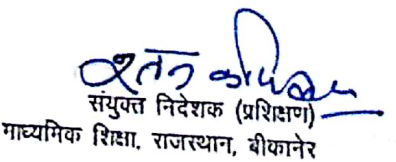 संयुक्त निदेशक (प्रशिक्षण)
माध्यमिक शिक्षा, राजस्थान, बीकानेर